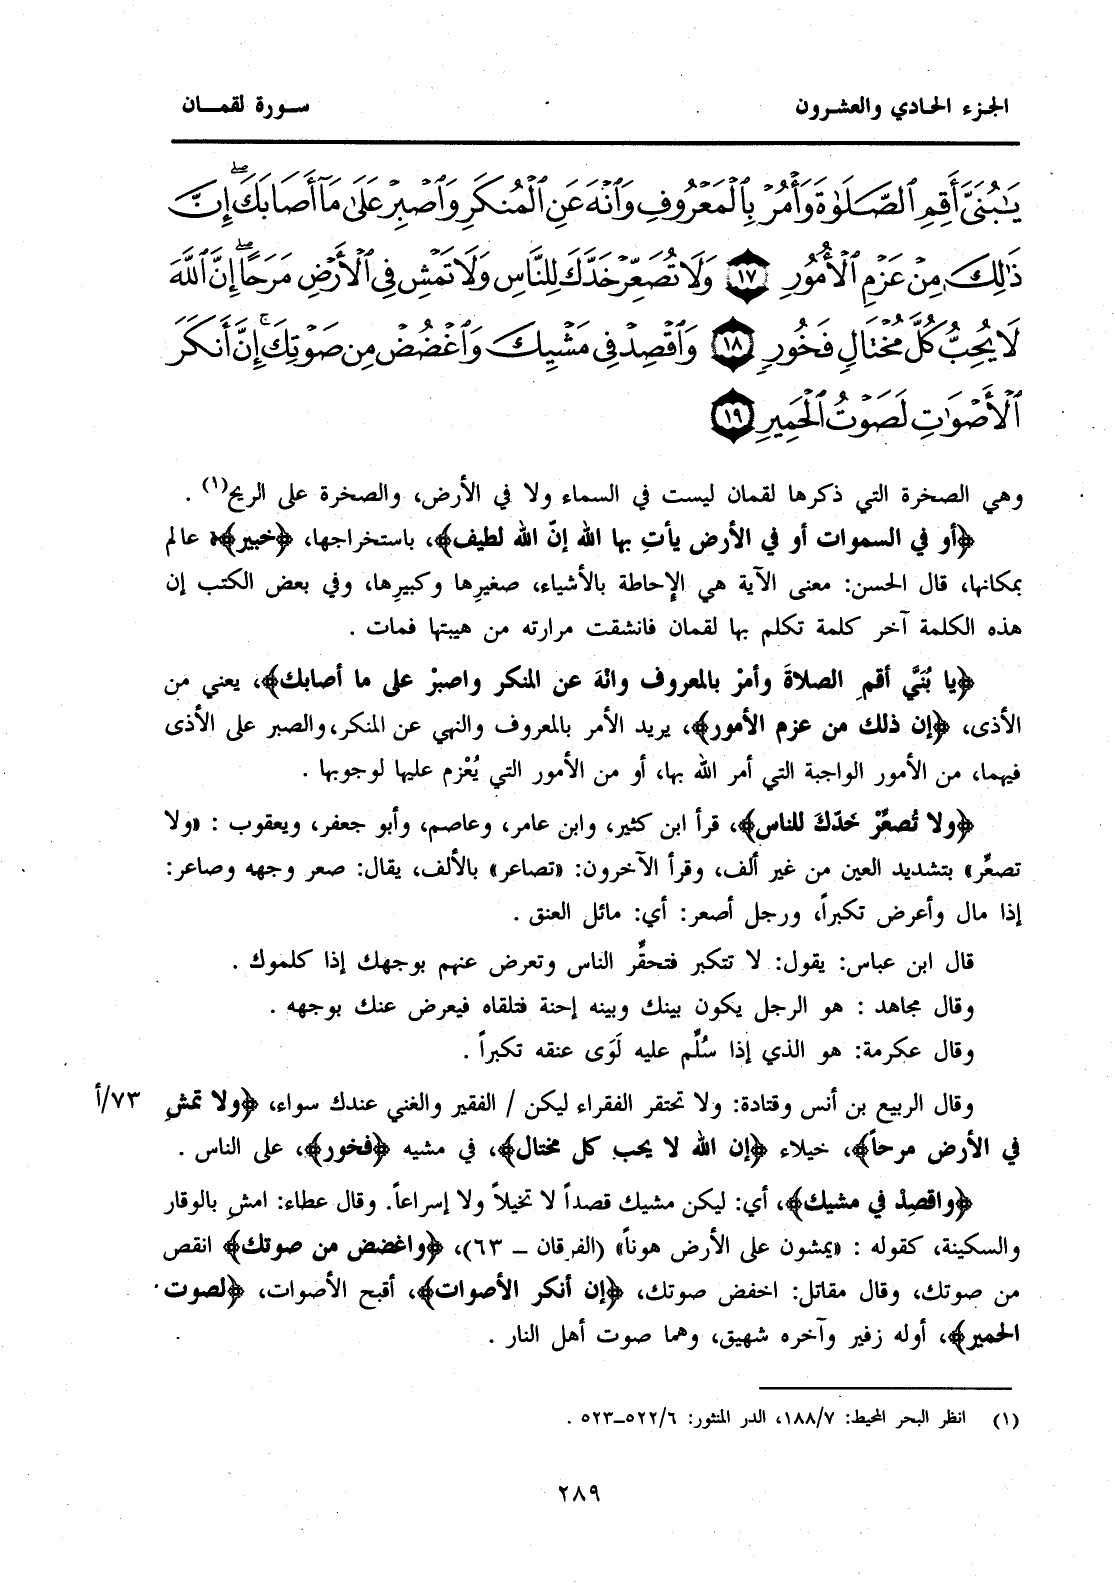 الجزء الحادي والعشرون
سورة لقمان
يَٰبُنَىَّ أَقِمِ ٱلصَّلَوٰةَ وَأْمُرْ بِٱلْمَعْرُوفِ وَٱنْهَ عَنِ ٱلْمُنكَرِ وَٱصْبِرْ عَلَىٰ مَآ أَصَابَكَ ۖ إِنَّ
ذَٰلِكَ مِنْ عَزْمِ ٱلْأُمُورِ ١٧ وَلَا تُصَعِّرْ خَدَّكَ لِلنَّاسِ وَلَا تَمْشِ فِى ٱلْأَرْضِ مَرَحًا ۖ إِنَّ ٱللَّهَ
لَا يُحِبُّ كُلَّ مُخْتَالٍ فَخُورٍ ١٨ وَٱقْصِدْ فِى مَشْيِكَ وَٱغْضُضْ مِن صَوْتِكَ ۚ إِنَّ أَنكَرَ
ٱلْأَصْوَٰتِ لَصَوْتُ ٱلْحَمِيرِ ١٩
وهي الصخرة التي ذكرها لقمان ليست في السماء ولا في الأرض، والصخرة على الريح(١) .
﴿أو في السموات أو في الأرض يأتِ بها الله إنّ الله لطيف﴾، باستخراجها، ﴿خبير﴾، عالم
بمكانها، قال الحسن: معنى الآية هي الإحاطة بالأشياء، صغيرِها وكبيرِها، وفي بعض الكتب إن
هذه الكلمة آخر كلمة تكلم بها لقمان فانشقت مرارته من هيبتها فمات .
﴿يا بُنَيَّ أقمِ الصلاةَ وأمرْ بالمعروف وانْهَ عن المنكر واصبرْ على ما أصابك﴾، يعني من
الأذى، ﴿إن ذلك من عزم الأمور﴾، يريد الأمر بالمعروف والنهي عن المنكر، والصبر على الأذى
فيهما، من الأمور الواجبة التي أمر الله بها، أو من الأمور التي يُعْزم عليها لوجوبها .
﴿ولا تُصعِّرْ خَدّكَ للناس﴾، قرأ ابن كثير، وابن عامر، وعاصم، وأبو جعفر، ويعقوب : «ولا
تصعِّر» بتشديد العين من غير ألف، وقرأ الآخرون: «تصاعر» بالألف، يقال: صعر وجهه وصاعر:
إذا مال وأعرض تكبراً، ورجل أصعر: أي: مائل العنق .
قال ابن عباس: يقول: لا تتكبر فتحقِّر الناس وتعرض عنهم بوجهك إذا كلموك .
وقال مجاهد : هو الرجل يكون بينك وبينه إحنة فتلقاه فيعرض عنك بوجهه .
وقال عكرمة: هو الذي إذا سُلِّم عليه لَوَى عنقه تكبراً .
وقال الربيع بن أنس وقتادة: ولا تحتقر الفقراء ليكن / الفقير والغني عندك سواء، ﴿ولا تمشِ ٧٣/أ
في الأرض مرحاً﴾، خيلاء ﴿إن الله لا يحب كل مختال﴾، في مشيه ﴿فخور﴾، على الناس .
﴿واقصِدْ في مشيك﴾، أي: ليكن مشيك قصداً لا تخيلاً ولا إسراعاً. وقال عطاء: امشِ بالوقار
والسكينة، كقوله : «يمشون على الأرض هوناً» (الفرقان – ٦٣)، ﴿واغضض من صوتك﴾ انقص
من صوتك، وقال مقاتل: اخفض صوتك، ﴿إن أنكر الأصوات﴾، أقبح الأصوات، ﴿لصوت
الحمير﴾، أوله زفير وآخره شهيق، وهما صوت أهل النار .
(١) انظر البحر المحيط: ١٨٨/٧، الدر المنثور: ٥٢٢/٦–٥٢٣ .
٢٨٩